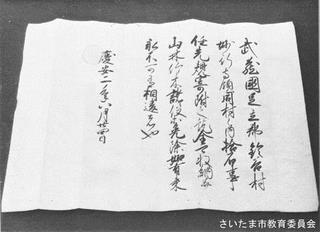 武蔵国足立郡 領家村
城行寺領同村之内拾石事
任先規寄附之訖全可収納并
山林竹木諸役免除如有来
永不可有相違者也
慶安二年八月廿四日
さいたま市教育委員会